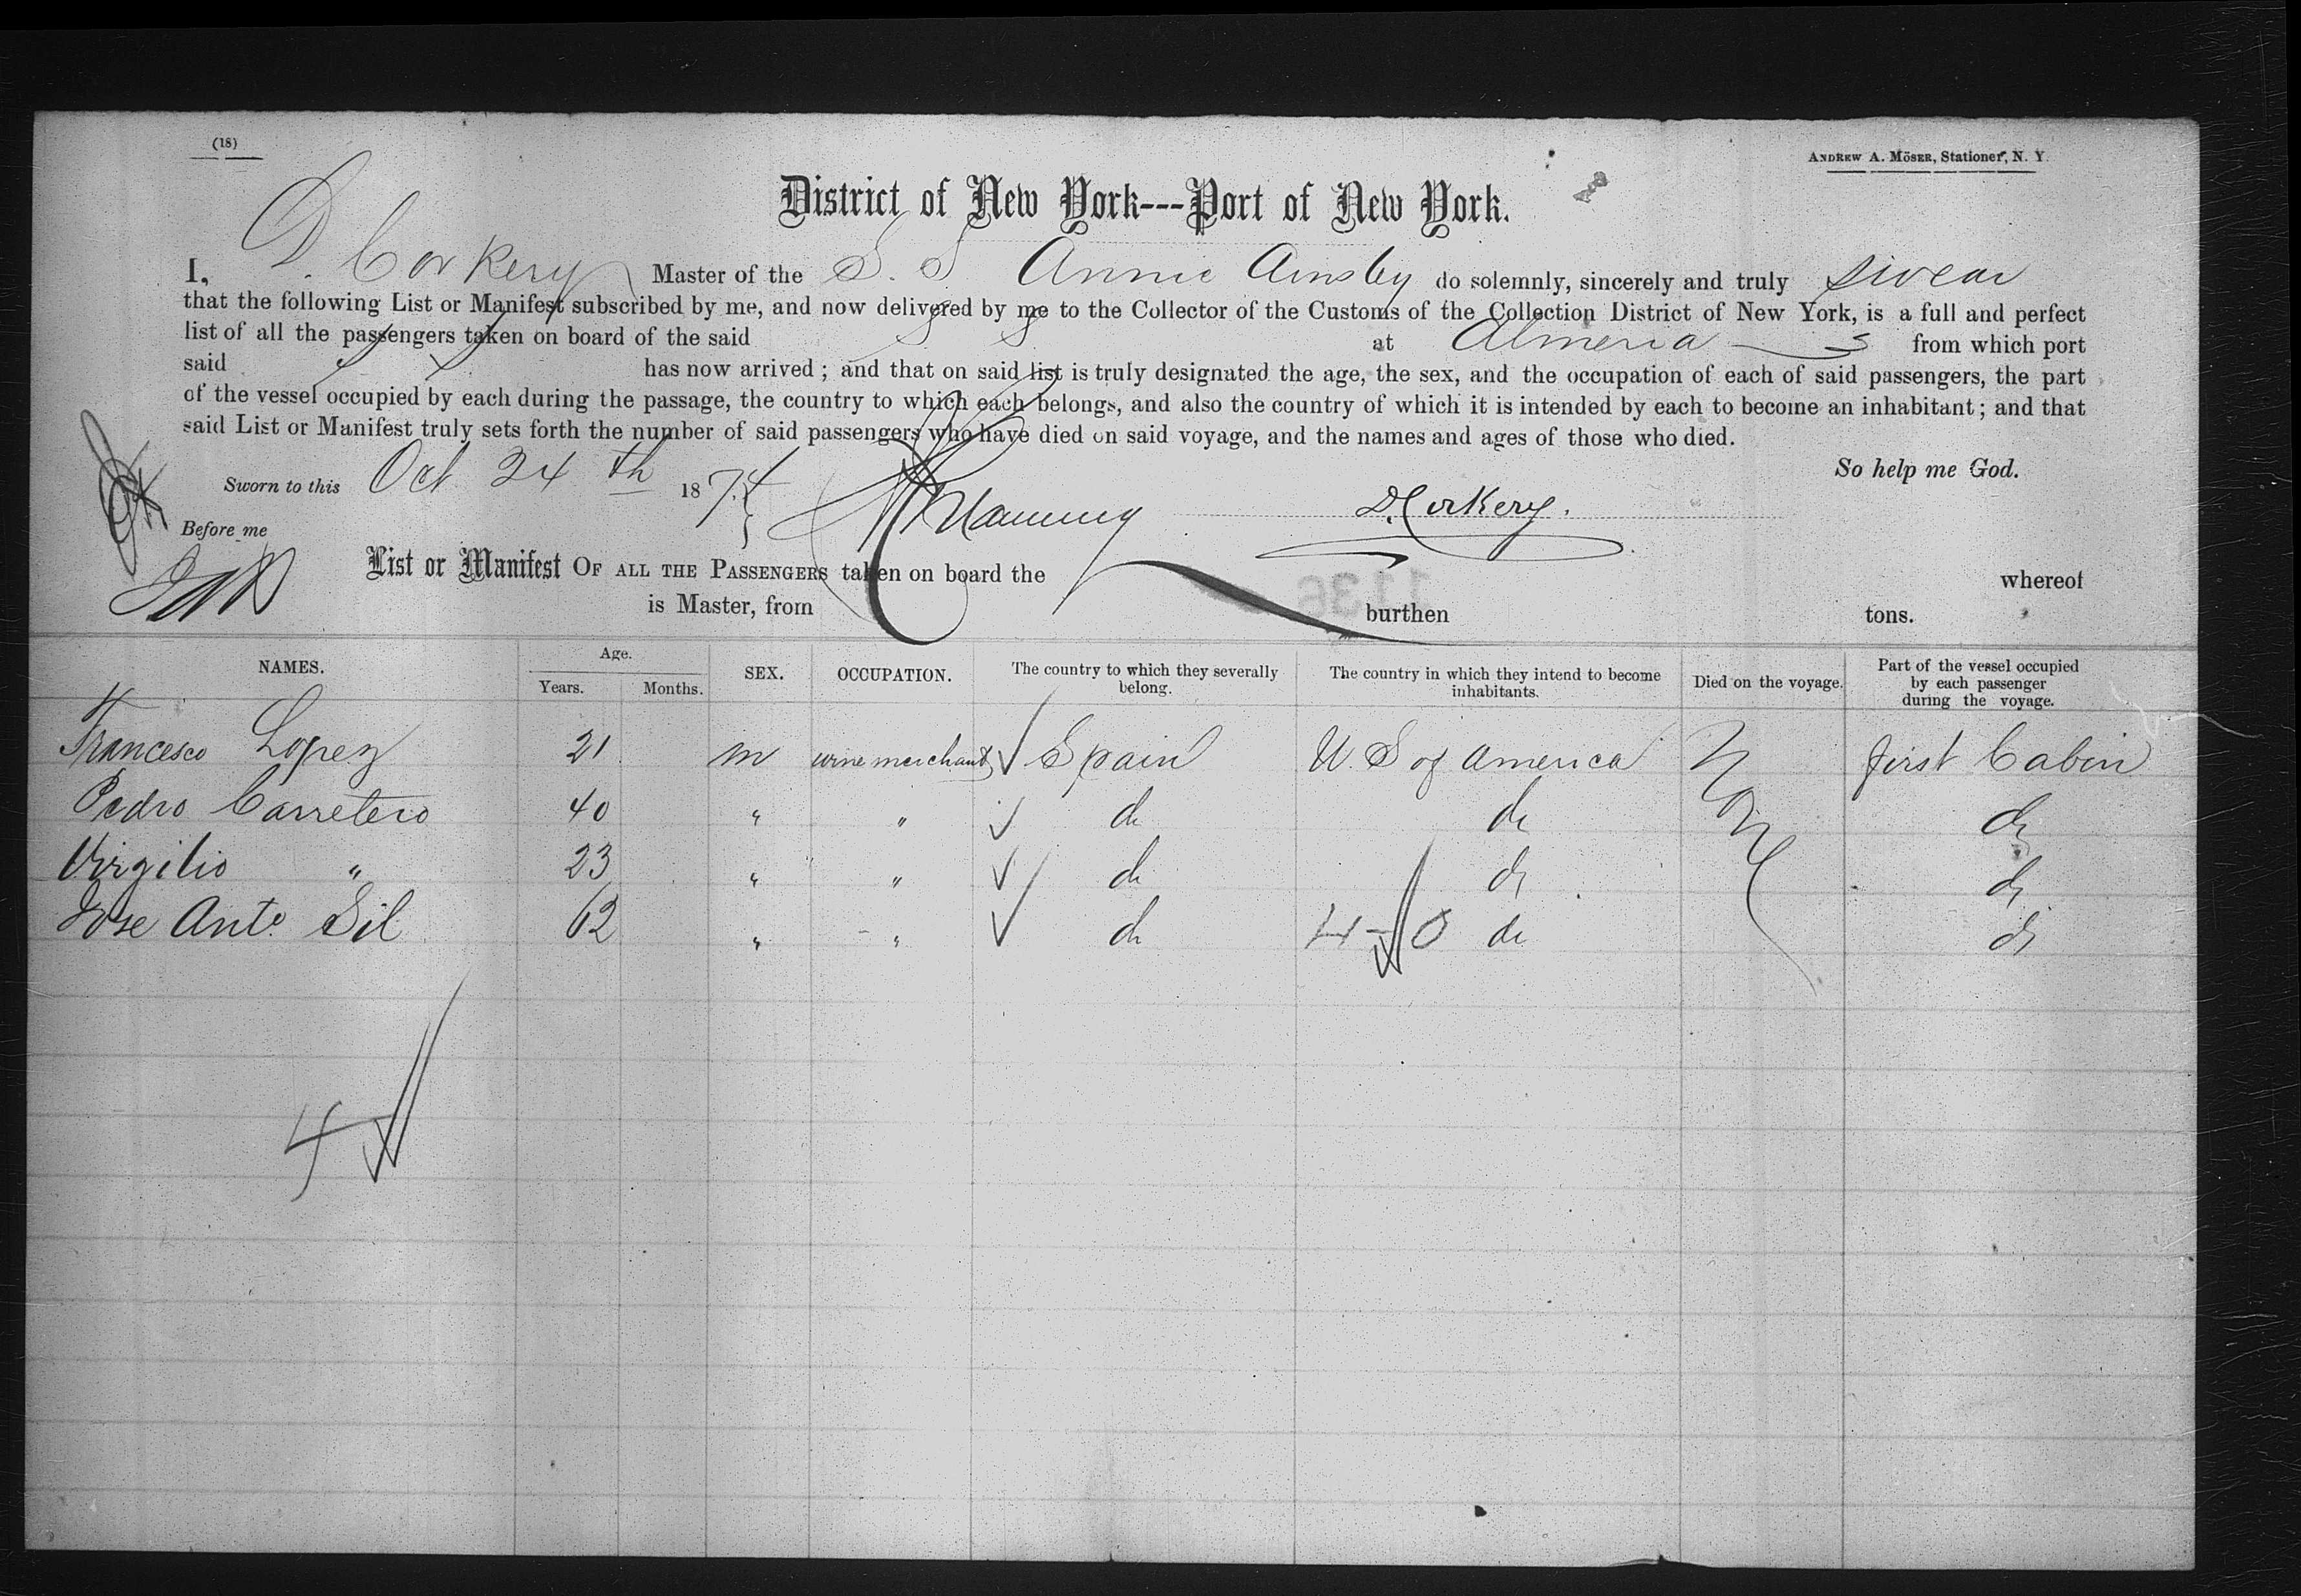 (18)
ANDREW A. MÖSER, Stationer, N. Y.
District of New York---Port of New York.
I, D. Corkery Master of the S. S Annie Ainsley do solemnly, sincerely and truly swear
that the following List or Manifest subscribed by me, and now delivered by me to the Collector of the Customs of the Collection District of New York, is a full and perfect
list of all the passengers taken on board of the said S S at Almeria from which port
said S S has now arrived ; and that on said list is truly designated the age, the sex, and the occupation of each of said passengers, the part
of the vessel occupied by each during the passage, the country to which each belongs, and also the country of which it is intended by each to become an inhabitant ; and that
said List or Manifest truly sets forth the number of said passengers who have died on said voyage, and the names and ages of those who died.
So help me God.
Sworn to this Oct 24 th 1874
D. Corkery.
Before me
List or Manifest OF ALL THE PASSENGERS taken on board the whereof
is Master, from burthen tons.
NAMES. Age. Years. Months. SEX. OCCUPATION. The country to which they severally belong. The country in which they intend to become inhabitants. Died on the voyage. Part of the vessel occupied by each passenger during the voyage.
Francesco Lopez 21 m wine merchant Spain U. S of America None first Cabin
Pedro Carretero 40 " " do do do
Virgilio " 23 " " do do do
Jose Anto. Gil 62 " " do 4-0 do do
4